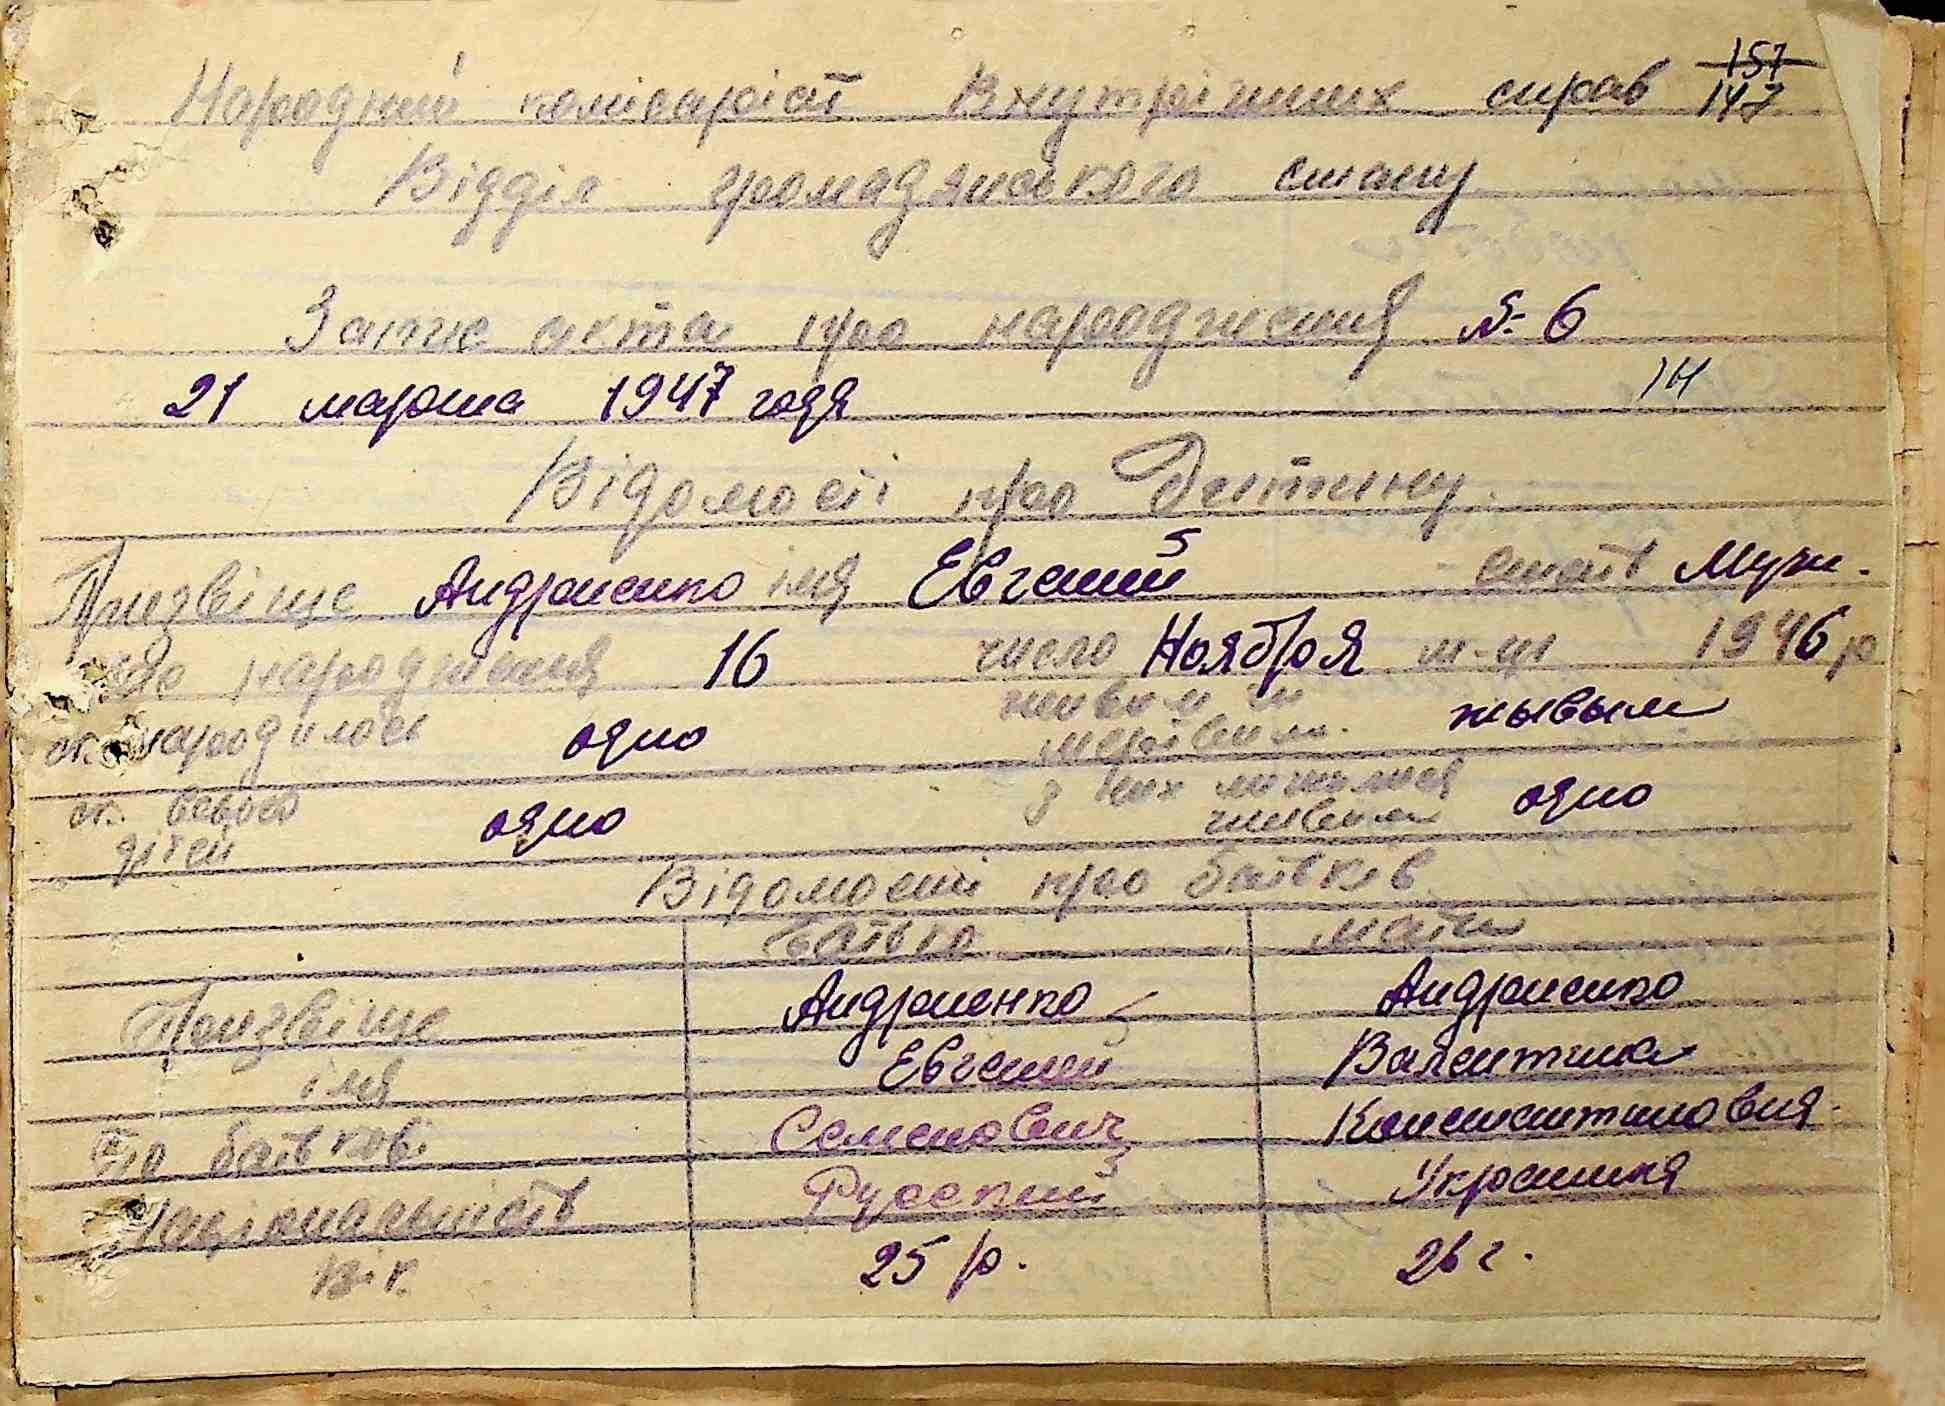 Народний комісаріат Внутрішніх справ 157
147
Відділ громадянського стану
Запис акта про народження № 6
21 марта 1947 года 14
Відомості про Дитину
Призвіще Андриенко імя Евгений стать Муж.
народження 16 число Ноября м-ця 1946 р
ск. народилось одно живом чи мертвим. жывым
ск. всього дітей одно з них лишилися живими одно
Відомості про батьків
Батько мати
Призвіще Андриенко Андриенко
імя Евгений Валентина
По батьков. Семенович Константиновна
Національність Русский Украинка
Вік. 25 р. 26 г.